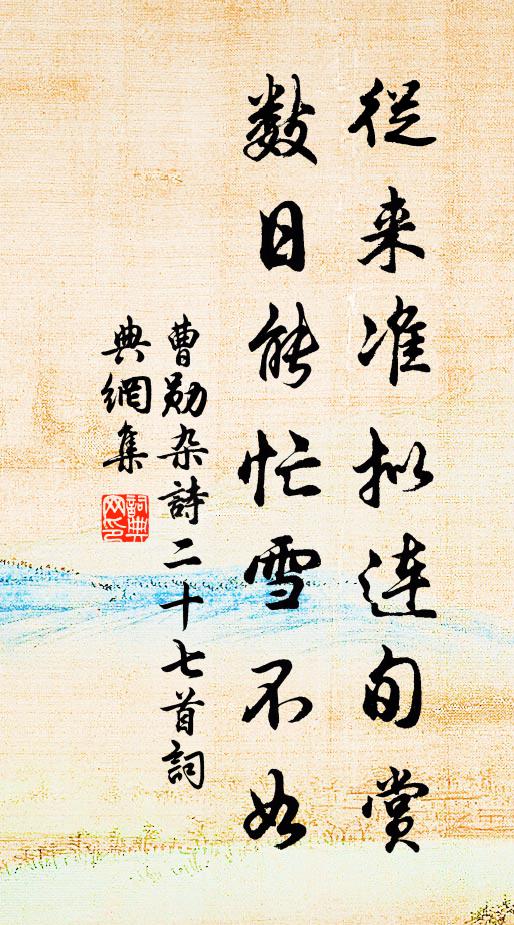 從来准拟連旬賞
数日能忙雪不如
曹勛杂詩二十七首詞
典網集
詞典
网印